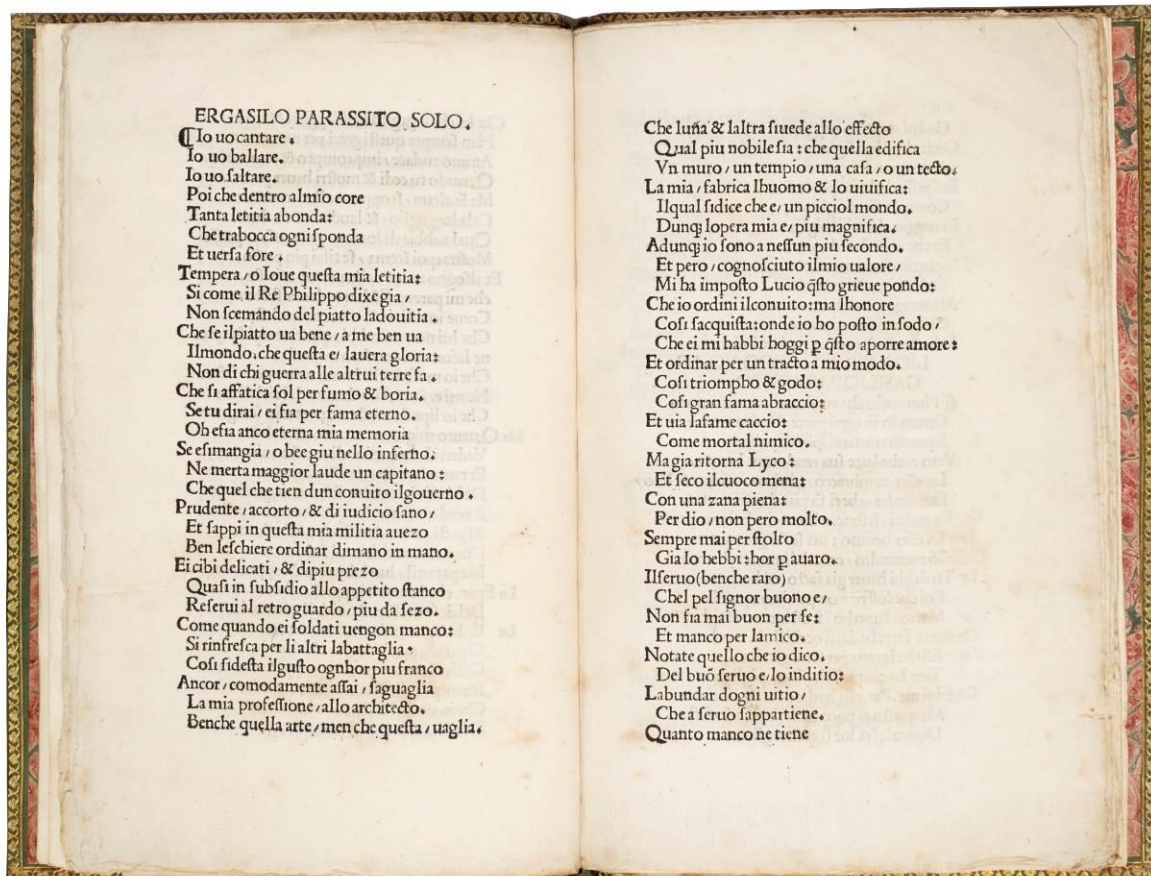 ERGASILO PARASSITO SOLO.
¶Io uo cantare.
Io uo ballare.
Io uo ſaltare.
Poi che dentro almio core
Tanta letitia abonda:
Che trabocca ogni ſponda
Et uerſa fore.
Tempera, o Ioue queſta mia letitia:
Si come il Re Philippo dixe gia,
Non ſcemando del piatto ladouitia.
Che ſe ilpiatto ua bene, a me ben ua
Ilmondo, che queſta e, lauera gloria:
Non di chi guerra alle altrui terre fa.
Che ſi affatica ſol per fumo & boria.
Se tu dirai, ei fia per fama eterno.
Oh eſia anco eterna mia memoria
Se eſimangia, o bee giu nello inferno.
Ne merta maggior laude un capitano:
Che quel che tien dun conuito ilgouerno.
Prudente, accorto, & di iudicio ſano,
Et ſappi in queſta mia militia auezo
Ben leſchiere ordinar dimano in mano.
Ei cibi delicati, & dipiu prezo
Quaſi in ſubſidio allo appetito ſtanco
Referui al retroguardo, piu da ſezo.
Come quando ei ſoldati uengon manco:
Si rinfreſca per li altri labattaglia.
Coſi ſideſta ilguſto ognhor piu franco
Ancor, comodamente aſſai, ſaguaglia
La mia profeſſione, allo architecto.
Benche quella arte, men che queſta, uaglia.
Che luña & laltra ſiuede allo effecto
Qual piu nobile ſia: che quella edifica
Vn muro, un tempio, una caſa, o un tecto.
La mia, fabrica lhuomo & lo uiuifica:
Ilqual ſidice che e, un picciol mondo.
Dunqȝ lopera mia e, piu magnifica.
Adunqȝ io ſono a neſſun piu ſecondo.
Et pero, cognoſciuto ilmio ualore,
Mi ha impoſto Lucio q̃ſto grieue pondo:
Che io ordini ilconuito: ma lhonore
Coſi ſacquiſta: onde io ho poſto in ſodo,
Che ei mi habbi hoggi ꝑ q̃ſto aporre amore:
Et ordinar per un tracto a mio modo.
Coſi triompho & godo:
Coſi gran fama abraccio:
Et uia lafame caccio:
Come mortal nimico.
Ma gia ritorna Lyco:
Et ſeco ilcuoco mena:
Con una zana piena:
Per dio, non pero molto.
Sempre mai per ſtolto
Gia lo hebbi: hor ꝑ auaro.
Ilſeruo (benche raro)
Chel pel ſignor buono e,
Non fia mai buon per ſe:
Et manco per lamico.
Notate quello che io dico.
Del buõ ſeruo e, lo inditio:
Labundar dogni uitio,
Che a ſeruo ſappartiene.
Quanto manco ne tiene